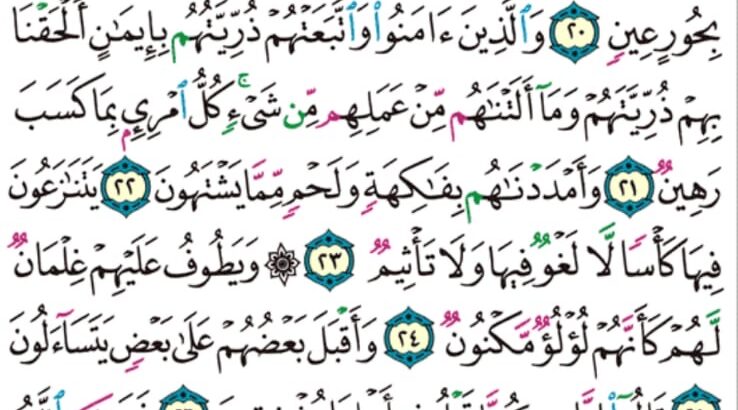 بِحُورٍ عِينٍ ٢٠ وَٱلَّذِينَ ءَامَنُوا۟ وَٱتَّبَعَتْهُمْ ذُرِّيَّتُهُم بِإِيمَٰنٍ أَلْحَقْنَا
بِهِمْ ذُرِّيَّتَهُمْ وَمَآ أَلَتْنَٰهُم مِّنْ عَمَلِهِم مِّن شَىْءٍ ۚ كُلُّ ٱمْرِئٍۭ بِمَا كَسَبَ
رَهِينٌ ٢١ وَأَمْدَدْنَٰهُم بِفَٰكِهَةٍ وَلَحْمٍ مِّمَّا يَشْتَهُونَ ٢٢ يَتَنَٰزَعُونَ
فِيهَا كَأْسًا لَّا لَغْوٌ فِيهَا وَلَا تَأْثِيمٌ ٢٣ ۞ وَيَطُوفُ عَلَيْهِمْ غِلْمَانٌ
لَّهُمْ كَأَنَّهُمْ لُؤْلُؤٌ مَّكْنُونٌ ٢٤ وَأَقْبَلَ بَعْضُهُمْ عَلَىٰ بَعْضٍ يَتَسَآءَلُونَ